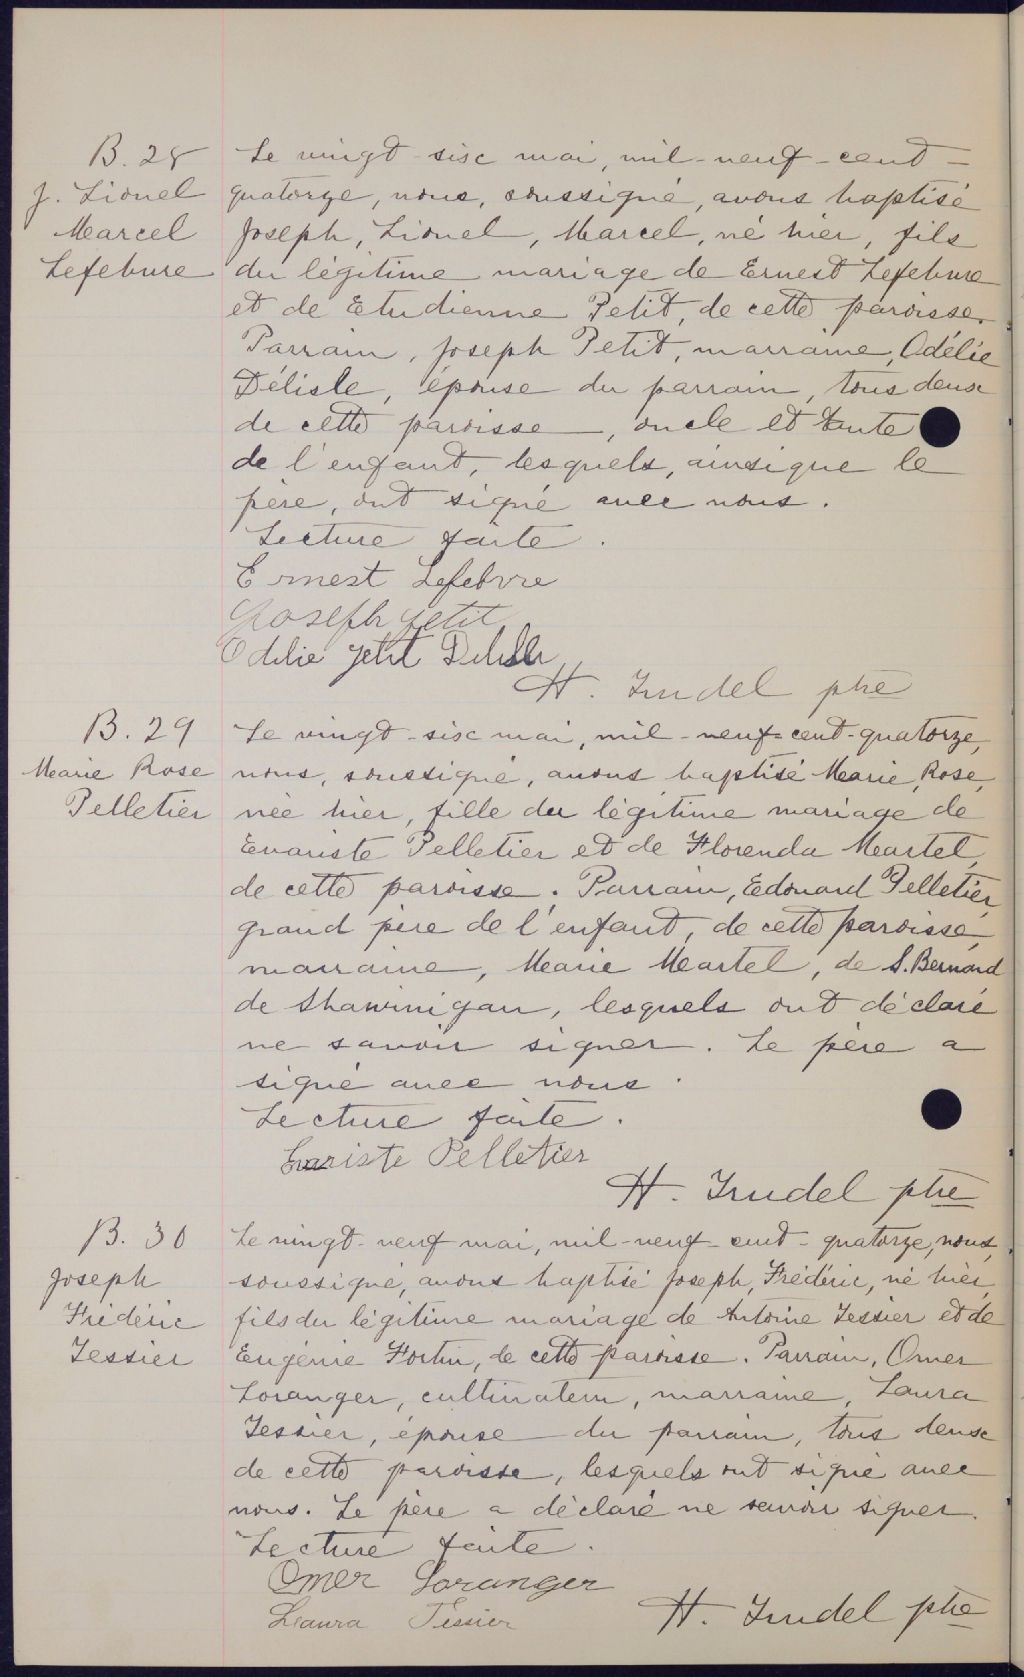 B. 28
J. Lionel
Marcel
Lefebvre
Le vingt-six mai, mil-neuf-cent-
quatorze, nous, soussigné, avons baptisé
Joseph, Lionel, Marcel, né hier, fils
du légitime mariage de Ernest Lefebvre
et de Etudienne Petit, de cette paroisse.
Parrain, Joseph Petit, marraine, Odélie
Délisle, épouse du parrain, tous deux
de cette paroisse, oncle et tante
de l'enfant, lesquels, ainsi que le
père, ont signé avec nous.
Lecture faite.
Ernest Lefebvre
Joseph Petit
Odelie Petit Delisle
H. Trudel ptre
B. 29
Marie Rose
Pelletier
Le vingt-six mai, mil-neuf-cent-quatorze,
nous, soussigné, avons baptisé Marie, Rose,
née hier, fille du légitime mariage de
Evariste Pelletier et de Florenda Martel,
de cette paroisse. Parrain, Edouard Pelletier,
grand père de l'enfant, de cette paroisse,
marraine, Marie Martel, de S. Bernard
de Shawinigan, lesquels ont déclaré
ne savoir signer. Le père a
signé avec nous.
Lecture faite.
Evariste Pelletier
H. Trudel ptre
B. 30
Joseph
Frédéric
Tessier
Le vingt-neuf mai, mil-neuf-cent-quatorze, nous,
soussigné, avons baptisé Joseph, Frédéric, né hier,
fils du légitime mariage de Antoine Tessier et de
Eugénie Fortin, de cette paroisse. Parrain, Omer
Loranger, cultivateur, marraine, Laura
Tessier, épouse du parrain, tous deux
de cette paroisse, lesquels ont signé avec
nous. Le père a déclaré ne savoir signer.
Lecture faite.
Omer Loranger
Laura Tessier
H. Trudel ptre